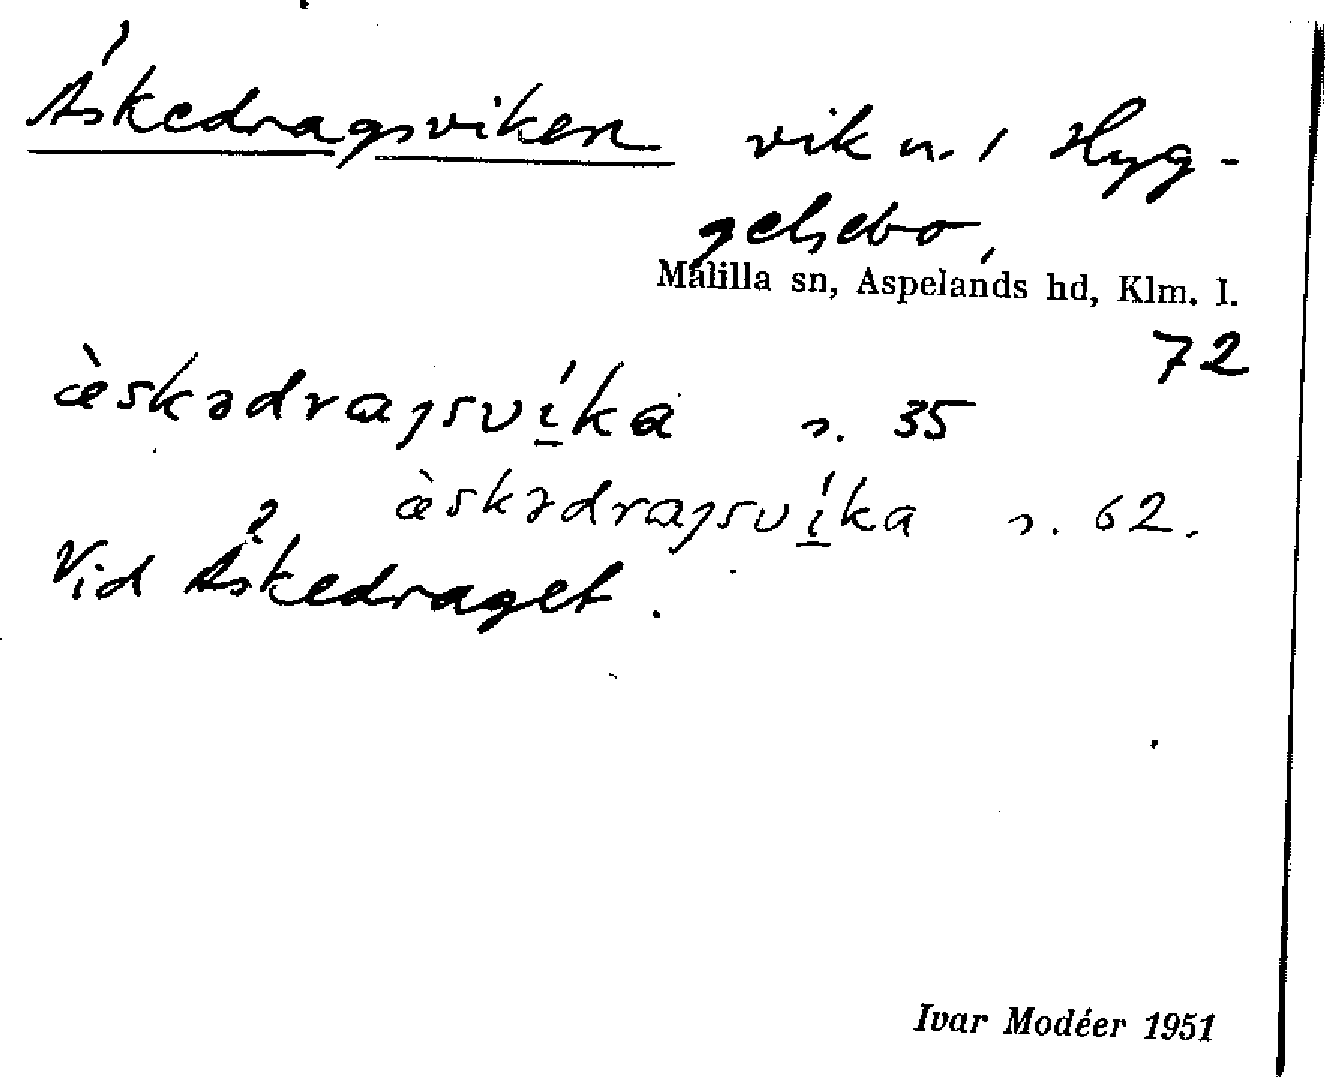 Åskedragsviken vik n. i Hyg-
gelsebo,
Målilla sn, Aspelands hd, Klm. l.
72
æ̀skədrajsví̲ka s. 35
æ̀skədrajsví̲ka s. 62.
Vid Åskedraget.
Ivar Modéer 1951